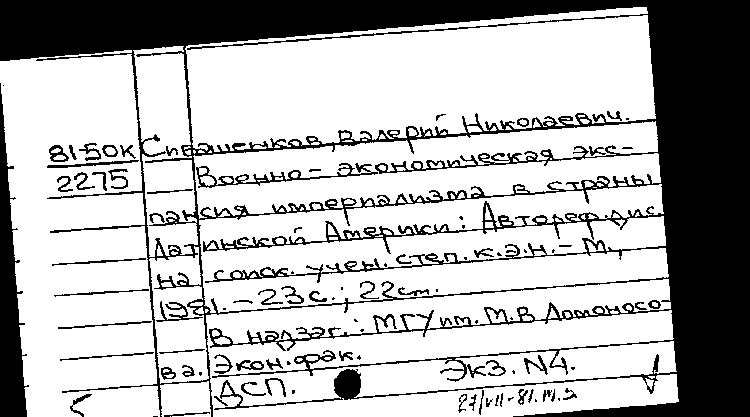 81-50К Сивашенков, Валерий Николаевич.
2275 Военно-экономическая экс-
пансия империализма в страны
Латинской Америки: Автореф. дис.
на соиск. учен. степ. к.э.н. - М.,
1981. - 23 с.; 22 см.
В надзаг.: МГУ им. М.В Ломоносо-
ва. Экон. фак.
ДСП. Экз. N4.
27/VII-81.